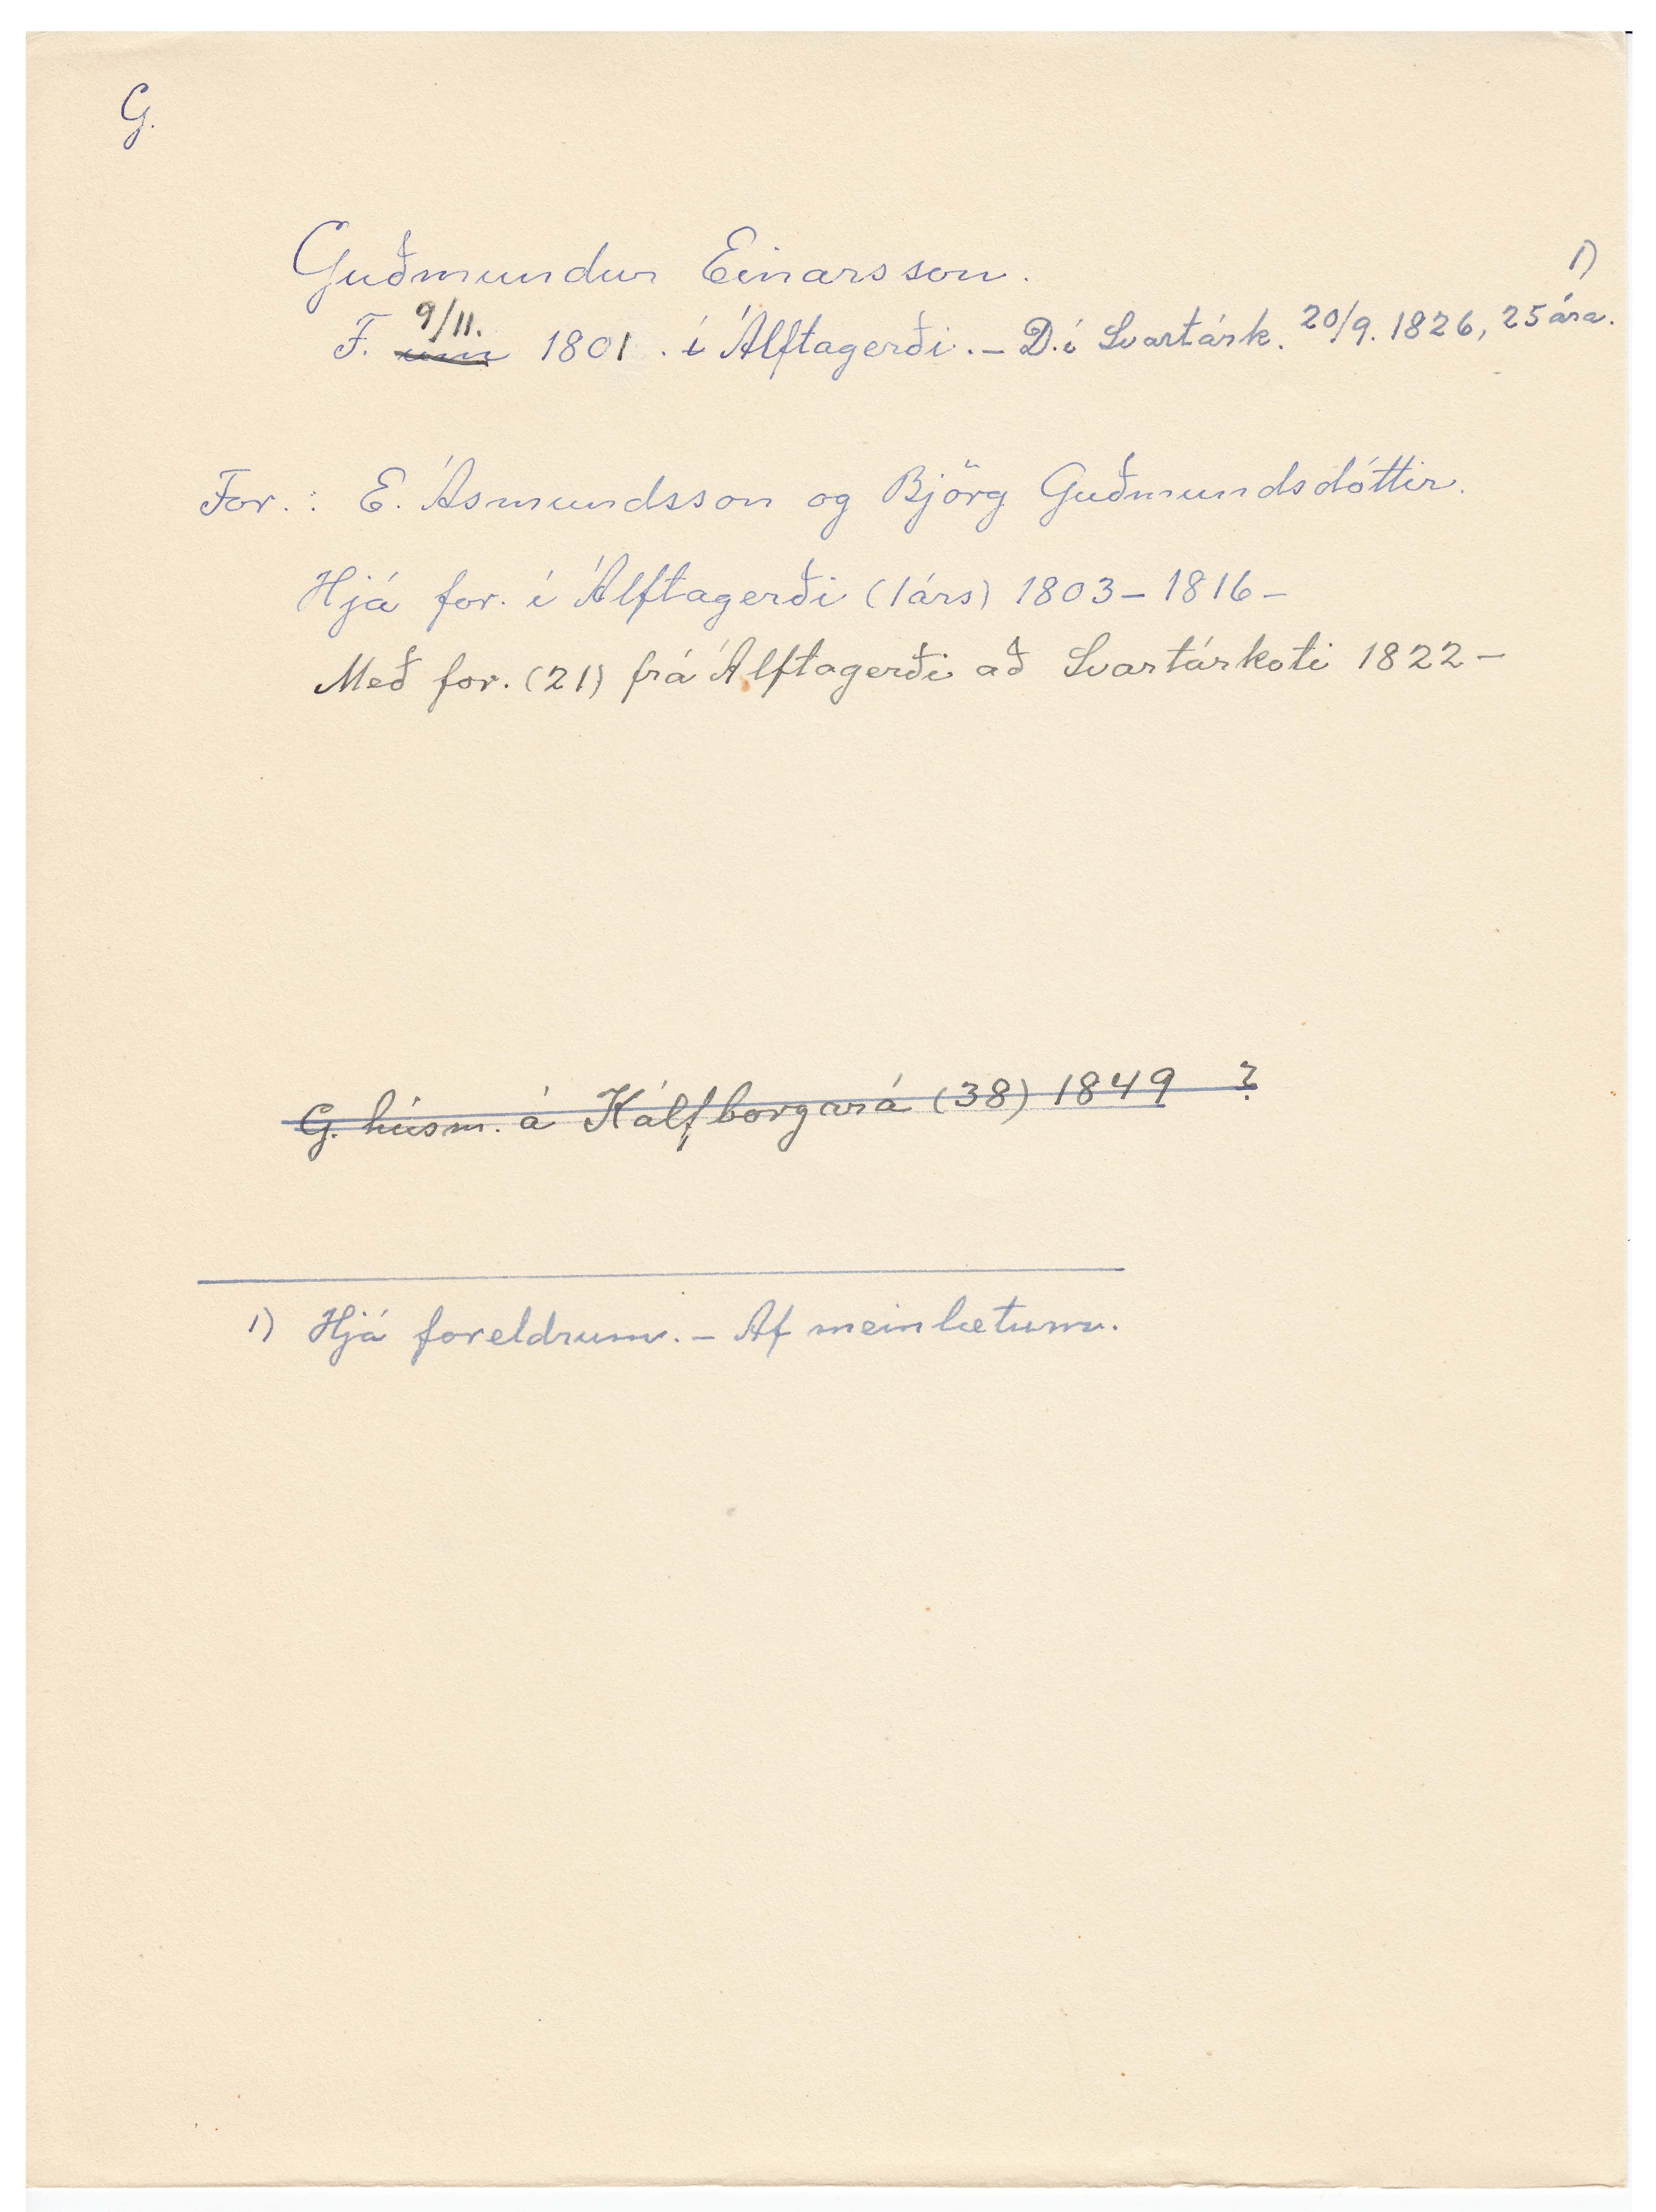 G.
Guðmundur Einarsson.
F. um 9/11. 1801. í Álftagerði. – D. í Svartárk. 20/9. 1826, 25 ára. 1)
For.: E. Ásmundsson og Björg Guðmundsdóttir.
Hjá for. í Álftagerði (1árs) 1803 – 1816 –
Með for. (21) frá Álftagerði að Svartárkoti 1822 –
G. húsm. á Kálfborgará (38) 1849 ?
1) Hjá foreldrum. – Af meinlætum.